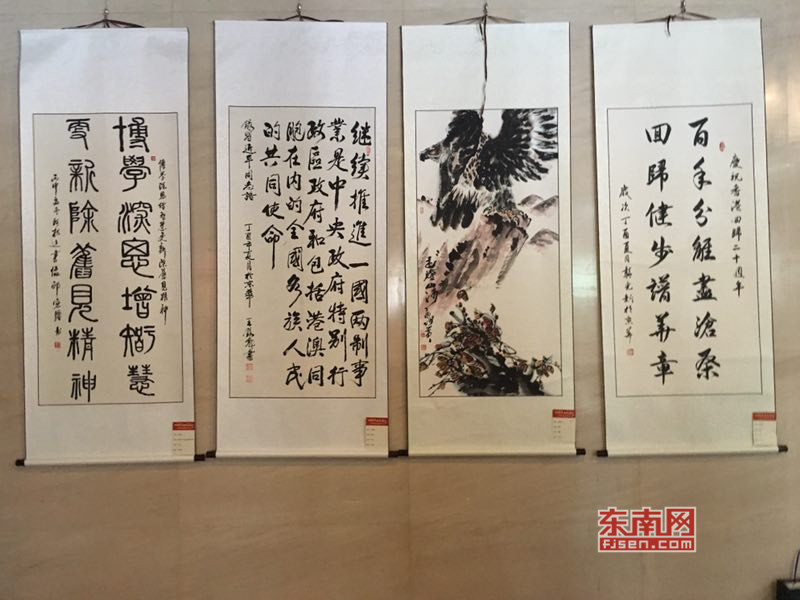 博學深思增智慧
更新除舊見精神
继續推進一國兩制事
業是中央政府特别行
政區政府和包括港澳同
胞在内的全國各族人民
的共同使命
錄習近平同志語 丁酉年夏月於京華
慶祝香港回歸二十週年
百年分離盡滄桑
回歸健步譜華章
歲次丁酉夏月
东南网
Fjsen.com